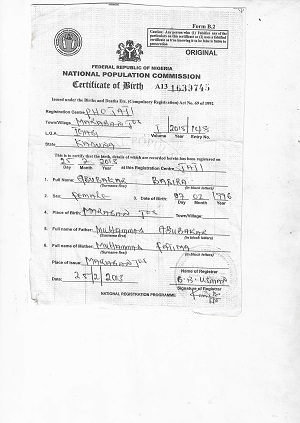 Form B.2
Caution: Any person who (1) Falsifies any of the particulars on this certificate or (2) uses a falsified certificate as true knowing it to be false is liable to prosecution
ORIGINAL
FEDERAL REPUBLIC OF NIGERIA
NATIONAL POPULATION COMMISSION
Certificate of Birth A13 1633745
Issued under the Births and Deaths Etc. (Compulsory Registration) Act No. 69 of 1992
Registration Centre: PHC JAJI
Town/Village: MARABAN JOS
L.G.A. IGABI
1 2013 143
Volume Year Entry No.
State KADUNA
This is to certify that the birth, details of which are recorded herein has been registered on
25 2 2013 at this Registration Centre JAJI
Day Month Year
1. Full Name: ABUBAKAR BARIRA
(Surname first) (in block letters)
2. Sex: FEMALE 3. Date of Birth: 02
Day Month Year
4. Place of Birth: MARABAN JOS Town/Village:
5. Full name of Father: MUHAMMAD ABUBAKAR
(Surname first) (in block letters)
6. Full name of Mother: MUHAMMAD FATIMA
(Surname first) (in block letters)
Place of Issue: MARABAN JOS
Name of Registrar
B. B. USMAN
Date: 25/2/2013
Signature of Registrar
NATIONAL REGISTRATION PROGRAMME